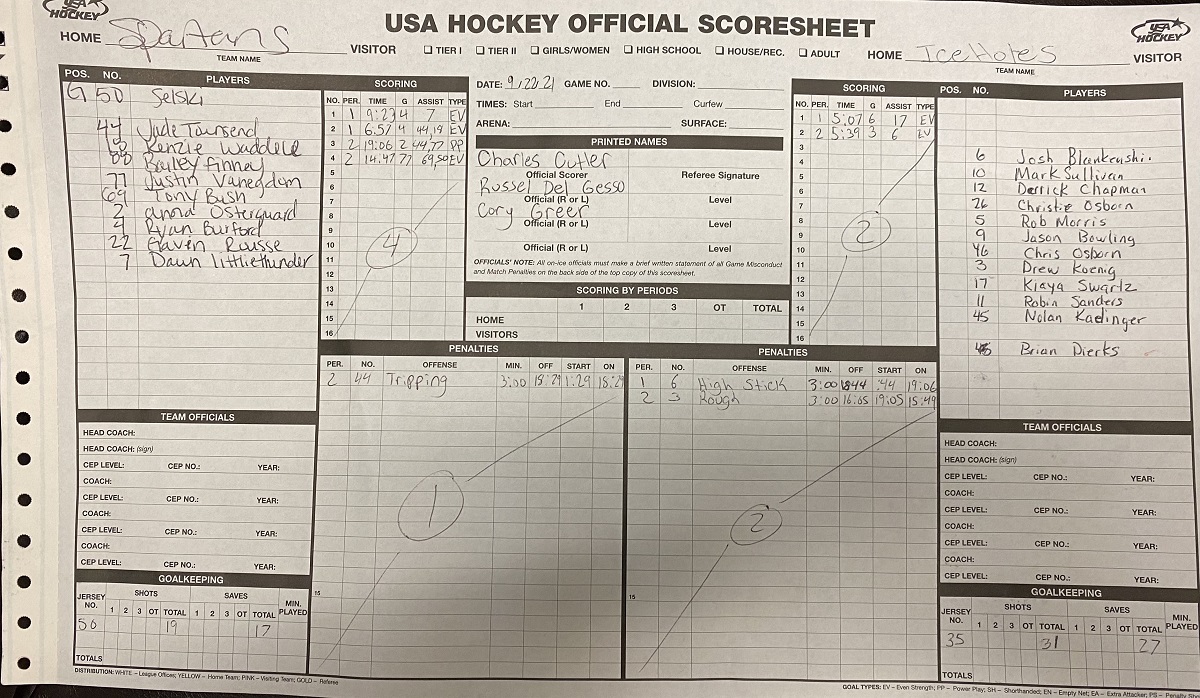 USA HOCKEY
USA HOCKEY OFFICIAL SCORESHEET
USA HOCKEY
HOME Spartans VISITOR
TEAM NAME
☐ TIER I ☐ TIER II ☐ GIRLS/WOMEN ☐ HIGH SCHOOL ☐ HOUSE/REC. ☐ ADULT
HOME IceHoles VISITOR
TEAM NAME
POS. NO. PLAYERS
G 50 Selski
44 Jude Townsend
18 Kenzie Waddell
88 Bailey Finney
77 Justin Vanegdom
69 Tony Bush
2 Osterguard
4 Ryan Burford
22 Gaven Rousse
7 Dawn littlethunder
SCORING
NO. PER. TIME G ASSIST TYPE
1 1 9:23 4 7 EV
2 1 6:57 4 44,18 EV
3 2 19:06 2 44,77 PP
4 2 14:47 77 69,50 EV
5
6
7
8
9
10
11
12
13
14
15
16
4
DATE: 9/22/21 GAME NO. DIVISION:
TIMES: Start End Curfew
ARENA: SURFACE:
PRINTED NAMES
Charles Cutler
Official Scorer Referee Signature
Russel Del Gesso
Official (R or L) Level
Cory Greer
Official (R or L) Level
Official (R or L) Level
OFFICIALS' NOTE: All on-ice officials must make a brief written statement of all Game Misconduct
and Match Penalties on the back side of the top copy of this scoresheet.
SCORING BY PERIODS
1 2 3 OT TOTAL
HOME
VISITORS
SCORING
NO. PER. TIME G ASSIST TYPE
1 1 5:07 6 17 EV
2 2 5:39 3 6 EV
3
4
5
6
7
8
9
10
11
12
13
14
15
16
2
POS. NO. PLAYERS
6 Josh Blankenshi.
10 Mark Sullivan
12 Derrick Chapman
26 Christie Osborn
5 Rob Morris
9 Jason Bowling
46 Chris Osborn
3 Drew Koenig
17 Kiaya Swartz
11 Robin Sanders
45 Nolan Kadinger
Brian Dierks
PENALTIES
PER. NO. OFFENSE MIN. OFF START ON
2 44 Tripping 3:00 18:29 1:29 18:29
1
15
PENALTIES
PER. NO. OFFENSE MIN. OFF START ON
1 6 High Stick 3:00 1844 :44 19:06
2 3 Rough 3:00 16:05 19:05 15:49
2
15
TEAM OFFICIALS
HEAD COACH:
HEAD COACH: (sign)
CEP LEVEL: CEP NO.: YEAR:
COACH:
CEP LEVEL: CEP NO.: YEAR:
COACH:
CEP LEVEL: CEP NO.: YEAR:
COACH:
CEP LEVEL: CEP NO.: YEAR:
GOALKEEPING
JERSEY NO. SHOTS SAVES MIN. PLAYED
1 2 3 OT TOTAL 1 2 3 OT TOTAL
50 19 17
TOTALS
TEAM OFFICIALS
HEAD COACH:
HEAD COACH: (sign)
CEP LEVEL: CEP NO.: YEAR:
COACH:
CEP LEVEL: CEP NO.: YEAR:
COACH:
CEP LEVEL: CEP NO.: YEAR:
COACH:
CEP LEVEL: CEP NO.: YEAR:
GOALKEEPING
JERSEY NO. SHOTS SAVES MIN. PLAYED
1 2 3 OT TOTAL 1 2 3 OT TOTAL
35 31 27
TOTALS
DISTRIBUTION: WHITE – League Offices; YELLOW – Home Team; PINK – Visiting Team; GOLD – Referee
GOAL TYPES: EV – Even Strength; PP – Power Play; SH – Shorthanded; EN – Empty Net; EA – Extra Attacker; PS –